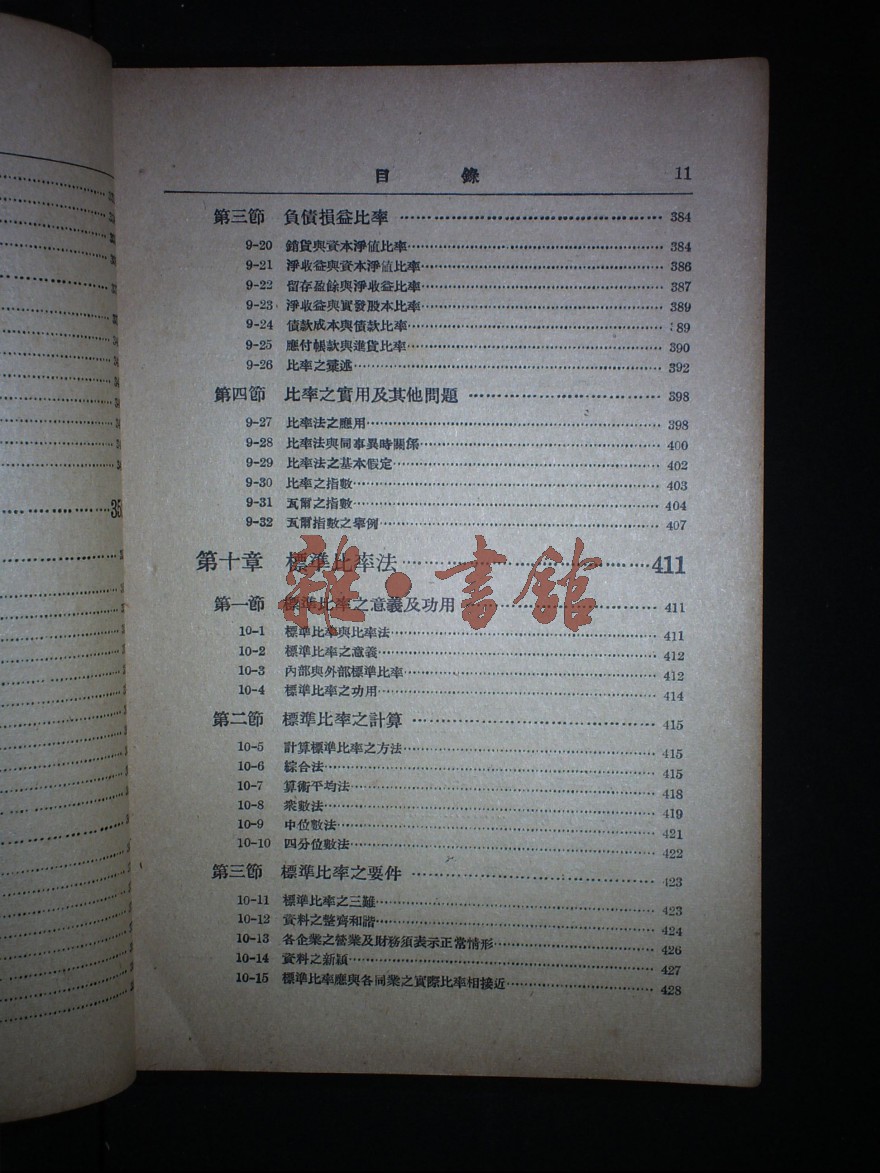 目 錄 11
第三節 負債損益比率 384
9-20 銷貨與資本淨值比率 384
9-21 淨收益與資本淨值比率 386
9-22 留存盈餘與淨收益比率 387
9-23 淨收益與實發股本比率 389
9-24 債款成本與債款比率 89
9-25 應付帳款與進貨比率 390
9-26 比率之彚述 392
第四節 比率之實用及其他問題 398
9-27 比率法之應用 398
9-28 比率法與同事異時關係 400
9-29 比率法之基本假定 402
9-30 比率之指數 403
9-31 瓦爾之指數 404
9-32 瓦爾指數之舉例 407
第十章 標準比率法 411
雜·書館
第一節 標準比率之意義及功用 411
10-1 標準比率與比率法 411
10-2 標準比率之意義 412
10-3 內部與外部標準比率 412
10-4 標準比率之功用 414
第二節 標準比率之計算 415
10-5 計算標準比率之方法 415
10-6 綜合法 415
10-7 算術平均法 418
10-8 衆數法 419
10-9 中位數法 421
10-10 四分位數法 422
第三節 標準比率之要件 423
10-11 標準比率之三難 423
10-12 資料之整齊和諧 424
10-13 各企業之營業及財務須表示正常情形 426
10-14 資料之新穎 427
10-15 標準比率應與各同業之實際比率相接近 428
35